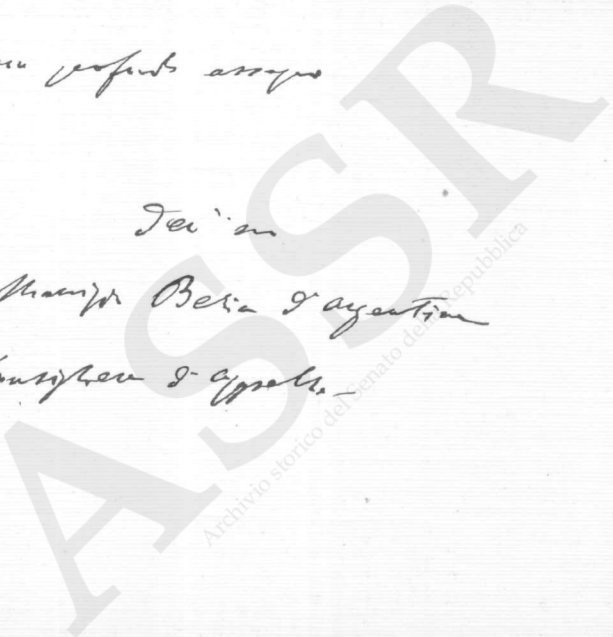 con profondo ossequio
Dev.mo
Maurizio Beria d'Argentina
Consigliere d'appello. -
ASSR
Archivio storico del Senato della Repubblica